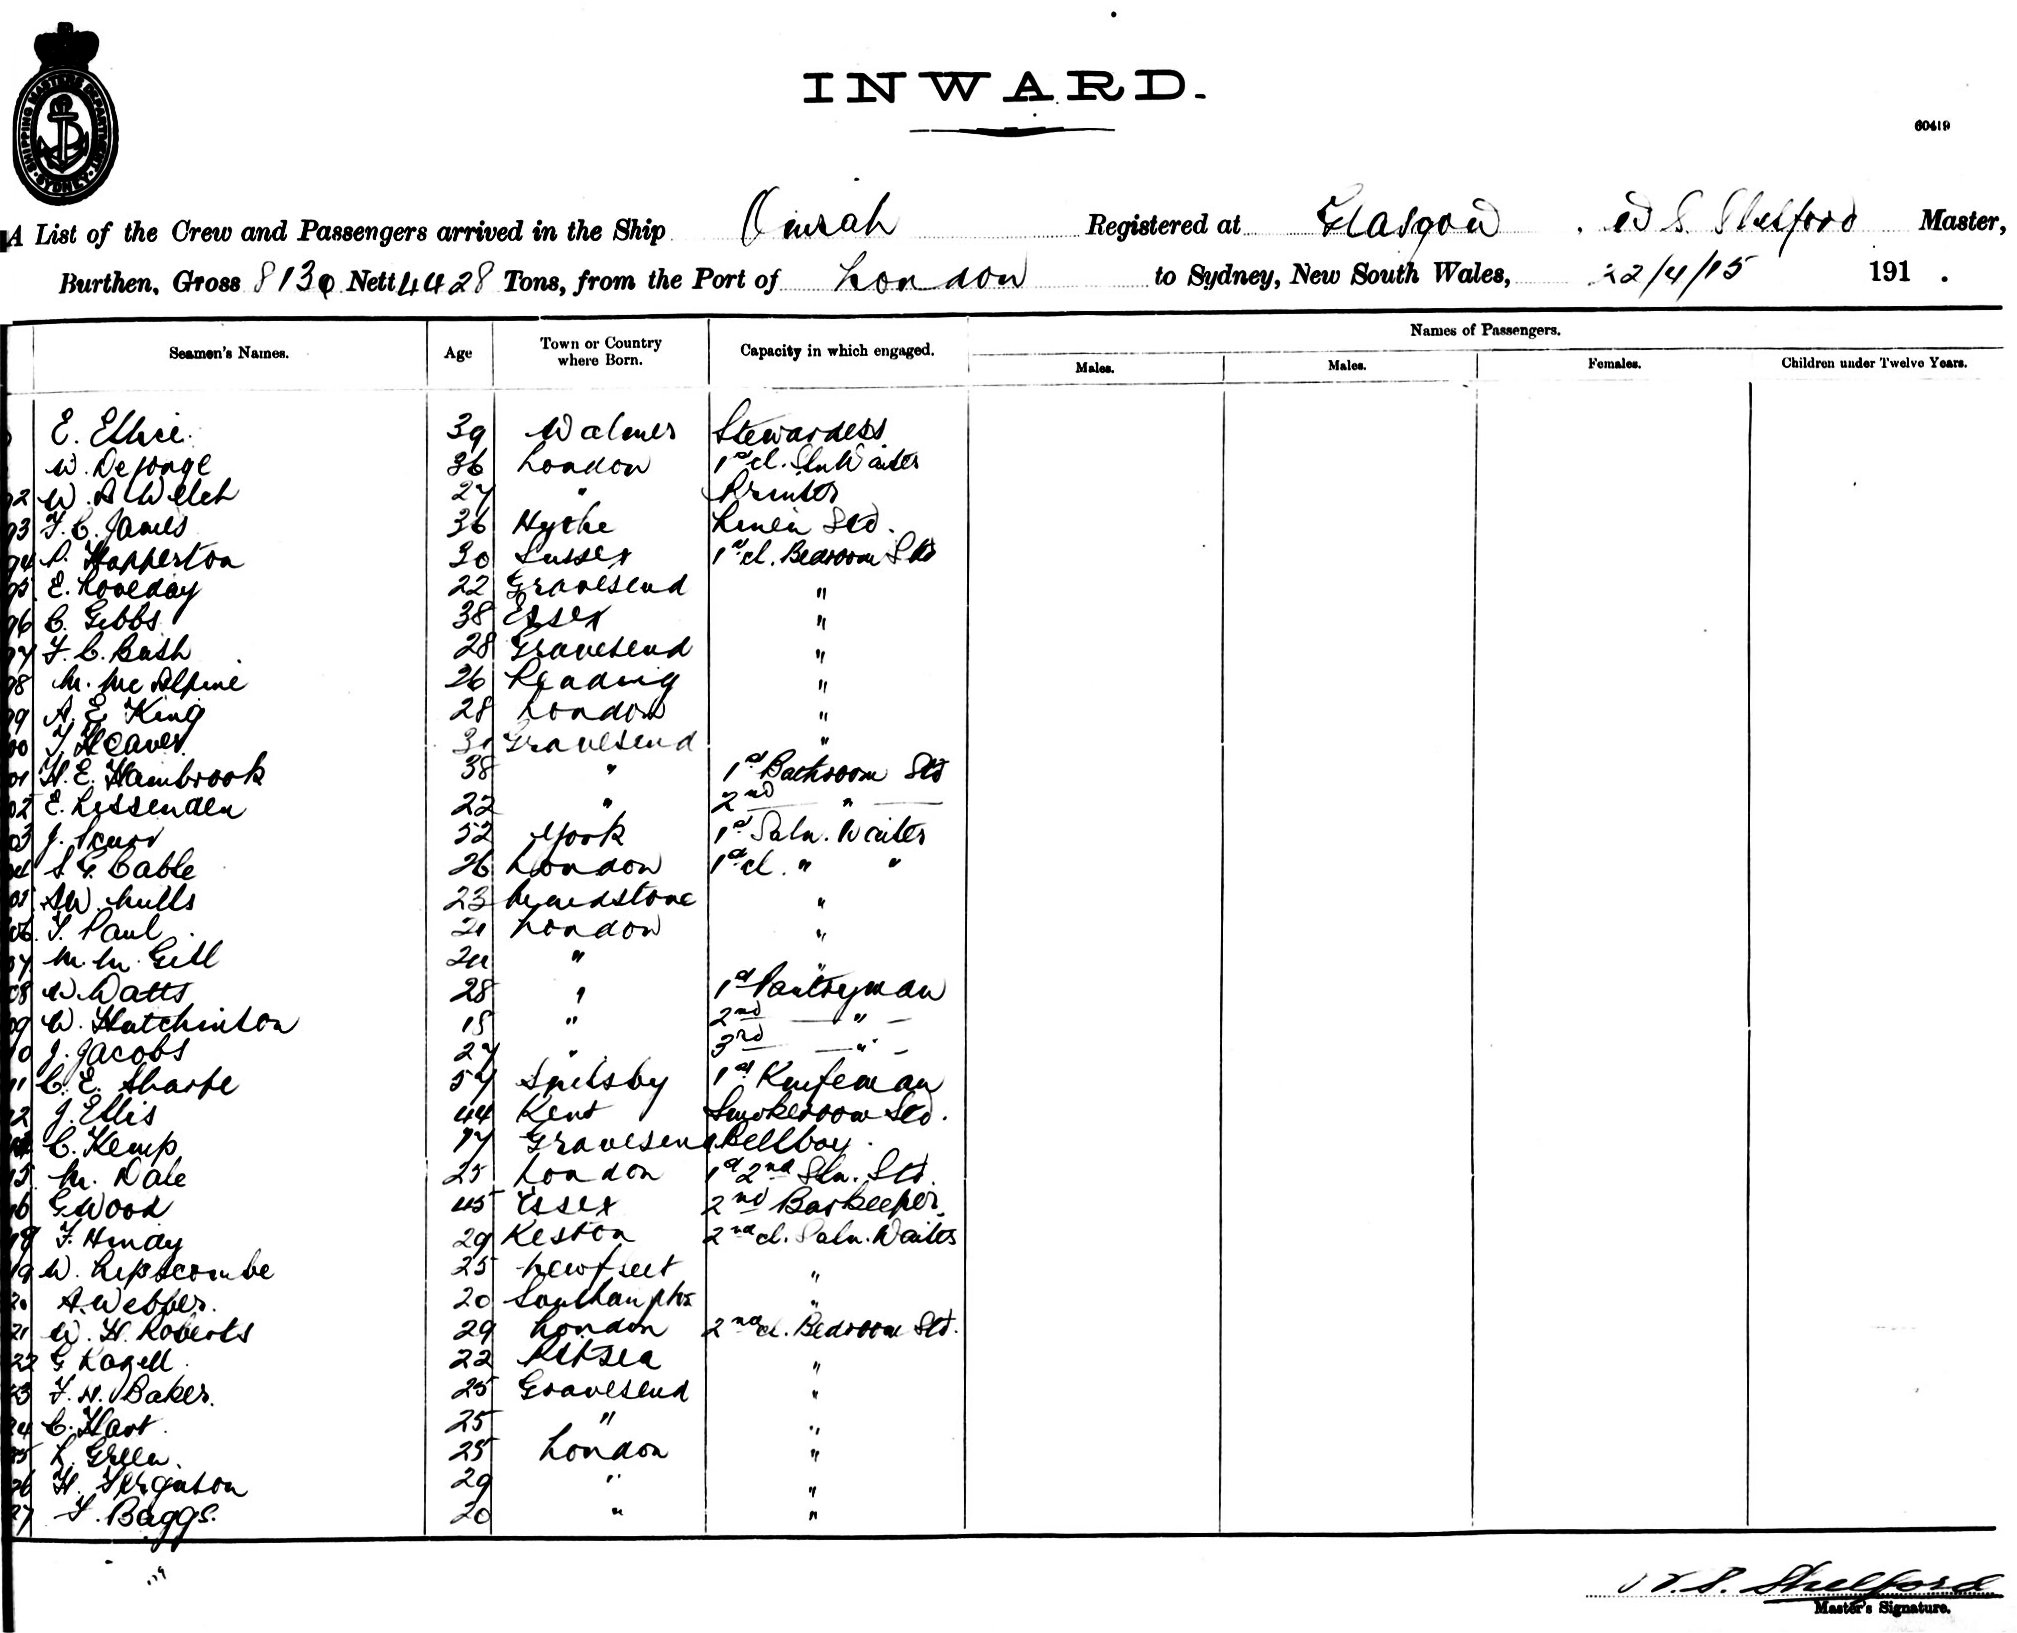 SHIPPING MASTERS DEPARTMENT. SYDNEY.
INWARD.
60419
A List of the Crew and Passengers arrived in the Ship Omrah Registered at Glasgow . W S Shelford Master,
Burthen, Gross 8130 Nett 4428 Tons, from the Port of London to Sydney, New South Wales, 22/4/15 191 .
Names of Passengers.
Seamen's Names. Age Town or Country where Born. Capacity in which engaged. Males. Males. Females. Children under Twelve Years.
E. Ellice. 39 Walmer Stewardess
W. DeJonge 36 London 1st cl. Sln Waiter
92 W. A Welch 27 " Printer
93 F. C. James 36 Hythe Linen Std.
94 Happerton 30 Sussex 1st cl. Bedroom Std
95 E. Loveday 22 Gravesend "
96 C. Gibbs 38 Essex "
97 F. C. Bush 28 Gravesend "
98 M. McAlpine 26 Reading "
99 A. E. King 28 London "
00 T. Heaver 31 Gravesend "
01 H. E. Hambrook 38 " 1st Bathroom Std
02 E. Lissenden 22 " 2nd "
03 J. 52 York 1st Saln. Waiter
04 S G. Cable 26 London 1st cl. " "
05 A W. Mills 23 Maidstone "
06. T. Paul 21 London "
07 M. M. Gill 24 " "
08 W Watts 28 " 1st Pantryman
09 W. Hutchinson 18 " 2nd "
10 J. Jacobs 27 " 3rd "
11 C. E. Sharpe 57 Spilsby 1st Knifeman
12 J. Ellis 44 Kent Smokeroom Std.
14 C. Kemp 17 Gravesend Bellboy.
15 M. Dale 25 London 1st 2nd Sln. Std.
16 G Wood 45 Essex 2nd Barkeeper.
18 F. Hindy 29 Keston 2nd cl. Saln. Waiter
19 W. Lipscombe 25 "
20 A. Webber. 20 Southampton "
21 W. H. Roberts 29 London 2nd cl. Bedroom Std.
22 G 22 Pitsea "
23 F. H. Baker. 25 Gravesend "
24 C. Hart 25 " "
25 L. Green. 25 London "
26 H. Ferguson 29 " "
27 Baggs. 20 " "
W. S. Shelford
Master's Signature.